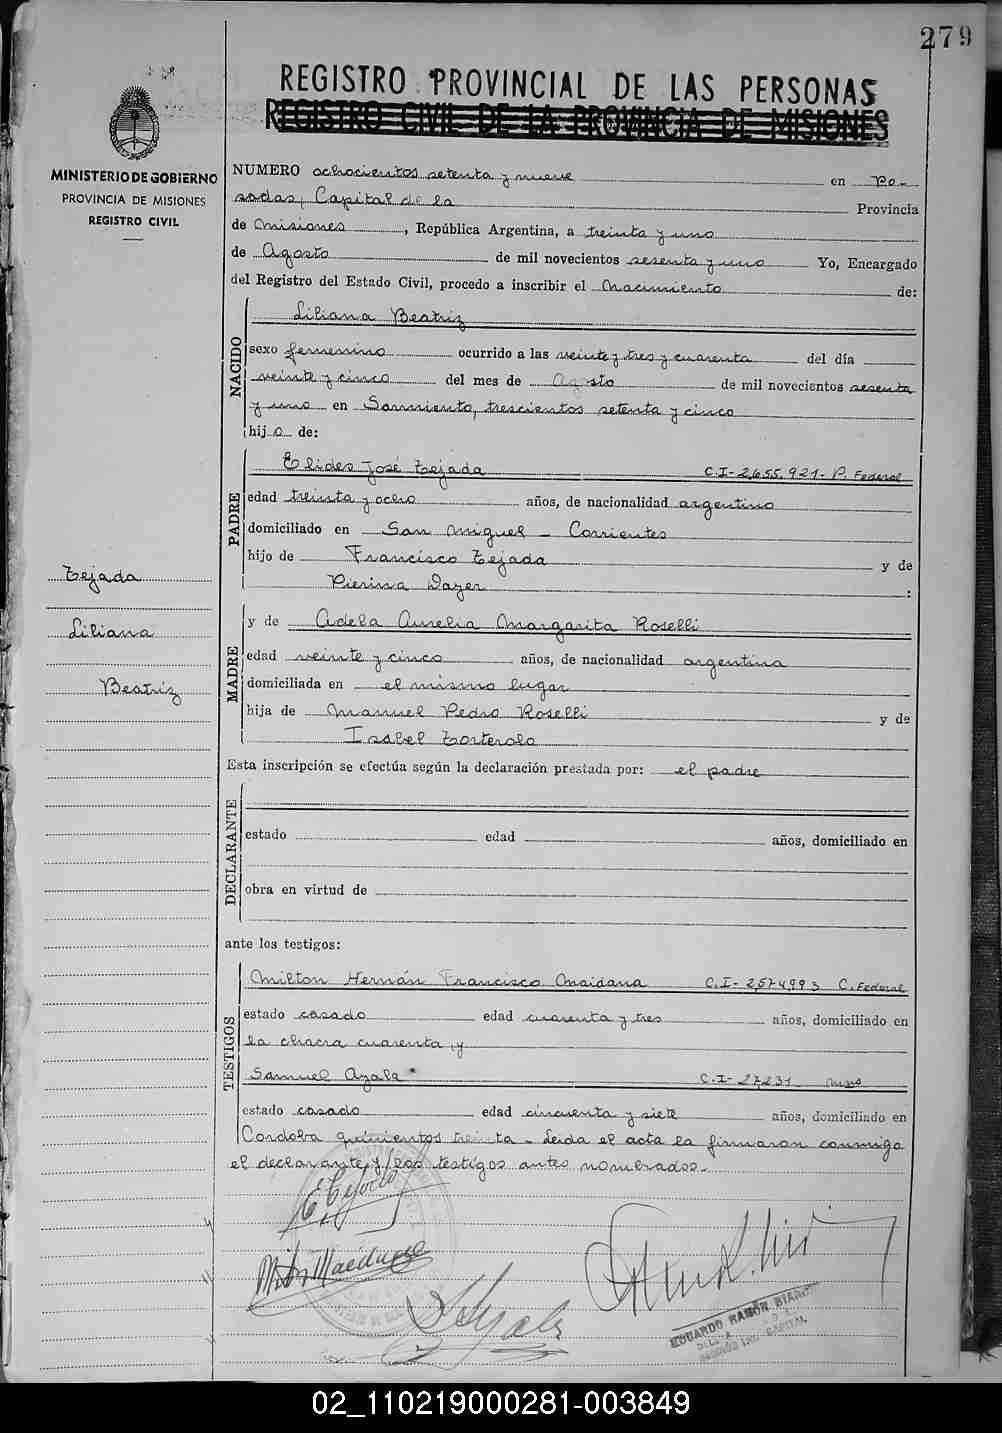 279
REGISTRO PROVINCIAL DE LAS PERSONAS
REGISTRO CIVIL DE LA PROVINCIA DE MISIONES
MINISTERIO DE GOBIERNO
PROVINCIA DE MISIONES
REGISTRO CIVIL
NUMERO ochocientos setenta y nueve en Po-
sadas, Capital de la Provincia
de Misiones, República Argentina, a treinta y uno
de Agosto de mil novecientos sesenta y uno Yo, Encargado
del Registro del Estado Civil, procedo a inscribir el Nacimiento de:
NACIDO
Liliana Beatriz
sexo femenino ocurrido a las veinte y tres y cuarenta del día
veinte y cinco del mes de Agosto de mil novecientos sesenta
y uno en Sarmiento, trescientos setenta y cinco
hija de:
PADRE
Elides José Tejada C.I-2,655,921-P. Federal
edad treinta y ocho años, de nacionalidad argentino
domiciliado en San Miguel - Corrientes
hijo de Francisco Tejada y de
Pierina Dazer :
Tejada
Liliana
Beatriz
MADRE
y de Adela Aurelia Margarita Roselli
edad veinte y cinco años, de nacionalidad argentina
domiciliada en el mismo lugar
hija de Manuel Pedro Roselli y de
Isabel Torterola
Esta inscripción se efectúa según la declaración prestada por: el padre
DECLARANTE
estado edad años, domiciliado en
obra en virtud de
ante los testigos:
TESTIGOS
Milton Hernán Francisco Maidana C.I-2,574,993 C. Federal
estado casado edad cuarenta y tres años, domiciliado en
la chacra cuarenta, y
Samuel Ayala C.I-27,231 Mnes
estado casado edad cincuenta y siete años, domiciliado en
Cordoba quinientos treinta - Leida el acta la firmaron conmigo
el declarante y los testigos antes nombrados.-
E Tejada
Milton Maidana
S Ayala
EDUARDO RAMÓN BIANCHI
CAPITAL
02_110219000281-003849